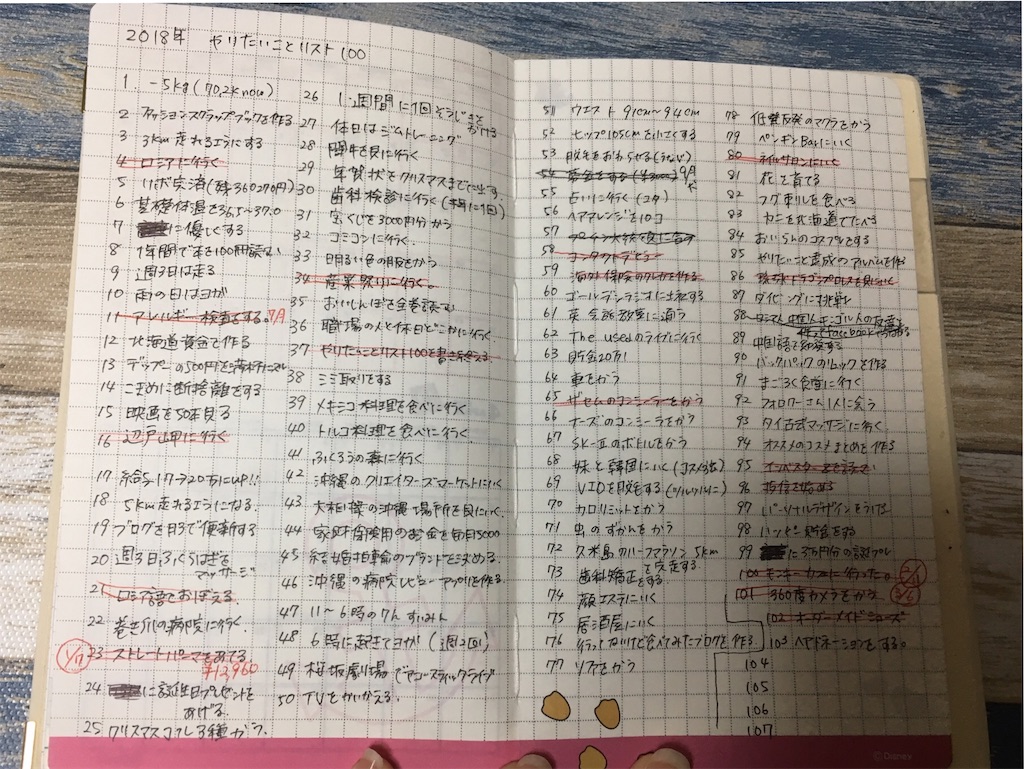 2018年 やりたいことリスト100
1. -5kg(70,2know)
2 ファッションスクラップブックを作る
3 3km走れるようにする
4 ロシアに行く
5 リボ完済(残360270円)
6 基礎体温を36.5~37.0
7 に優しくする
8 1年間で本を100冊読む
9 週3日は走る
10 雨の日はヨガ
11 アレルギー検査をする。7A
12 北海道資金を作る
13 デップーの500円を満杯にする
14 こまめに断捨離をする
15 映画を50本見る
16 辺戸岬に行く
17 給与17→20万にUP!!
18 5km走れるようになる。
19 ブログを日3で更新する
20 週3日ふくらはぎを
マッサージ
21 ロシア語をおぼえる。
22 巻き爪の病院に行く。
1/7 23 ストレートパーマをあてる
¥12,960
24 に誕生日プレゼントを
あげる。
25 クリスマスコフレ3種かう。
26 1週間に1回そうじきを
かける
27 休日はジムトレーニング
28 闘牛を見に行く
29 年賀状をクリスマスまでに出す。
30 歯科検診に行く(半年に1回)
31 宝くじを3000円分かう
32 コミコンに行く。
33 明るい色の服をかう
34 産業祭りに行く。
35 おいしんぼを全巻読む
36 職場の人と休日どこかに行く。
37 やりたいことリスト100を書き終える。
38 ミミ取りをする
39 メキシコ料理を食べに行く
40 トルコ料理を食べに行く
41 ふくろうの森に行く
42 沖縄のクリエイターズマーケットにいく
43 大相撲の沖縄場所を見にいく。
44 家庭菌使用のお金を毎月5000
45 結婚指輪のブランドを決める。
46 沖縄の病院レビューアプリを作る。
47 11~6時の7hすいみん
48 6時に起きてヨガ(週2回)
49 桜坂劇場でアコースティックライブ
50 TVをかいかえる。
51 ウエスト91cm~94cm
52 ヒップ105cmを小さくする
53 脱毛をおわらせる(うなじ)
54 募金をする(年3000)9A
55 占いに行く(ユタ)
56 ヘアアレンジを10コ
57
58 コンタクトデビュー
59 海外保険のクレカを作る。
60 ゴールデンラジオに出演する
61 英会話教室に通う
62 The usedのライブに行く
63 貯金20万!
64 車をかう
65 ザセムのコンシーラーをかう
66 ナーズのコンシーラをかう
67 SK-Ⅱのボトルをかう
68 妹と韓国にいく(コスメ3万)
69 VIOを脱毛する
70 カロリミットをかう
71 虫のずかんをかう
72 久米島のハーフマラソン5km
を完走する。
73 歯科矯正をする
74 顔エステにいく
75 居酒屋にいく
76 行ってかいて食べてみたブログを作る
77 ソファをかう
78 低反発のマクラをかう
79 ペンギンBarにいく
80 ネイルサロンにいく
81 花を育てる
82 フグ刺しを食べる
83 カニを北海道でたべる
84 おいらんのコスプレをする
85 やりたいこと達成のアルバムを作る
86 琉球ドラゴンプロレスを見にいく
87 ダイビングに挑戦
88
89 中国語で
90 バックパックのリュックを作る
91 まごころ食堂に行く
92 フォロワーさん1人に会う
93 タイ古式マッサージに行く
94 オススメのコスメまとめを作る
95
96 投信を始める
97 パーソナルデザインをうける
98 ハッピー貯金をする
99 に3万円分の誕プレ
100 モンキーカフェに行った。
101 360度カメラをかう
102 オーダーメイドシューズ
103 ヘアドネーションをする。
104
105
106
107
©Disney